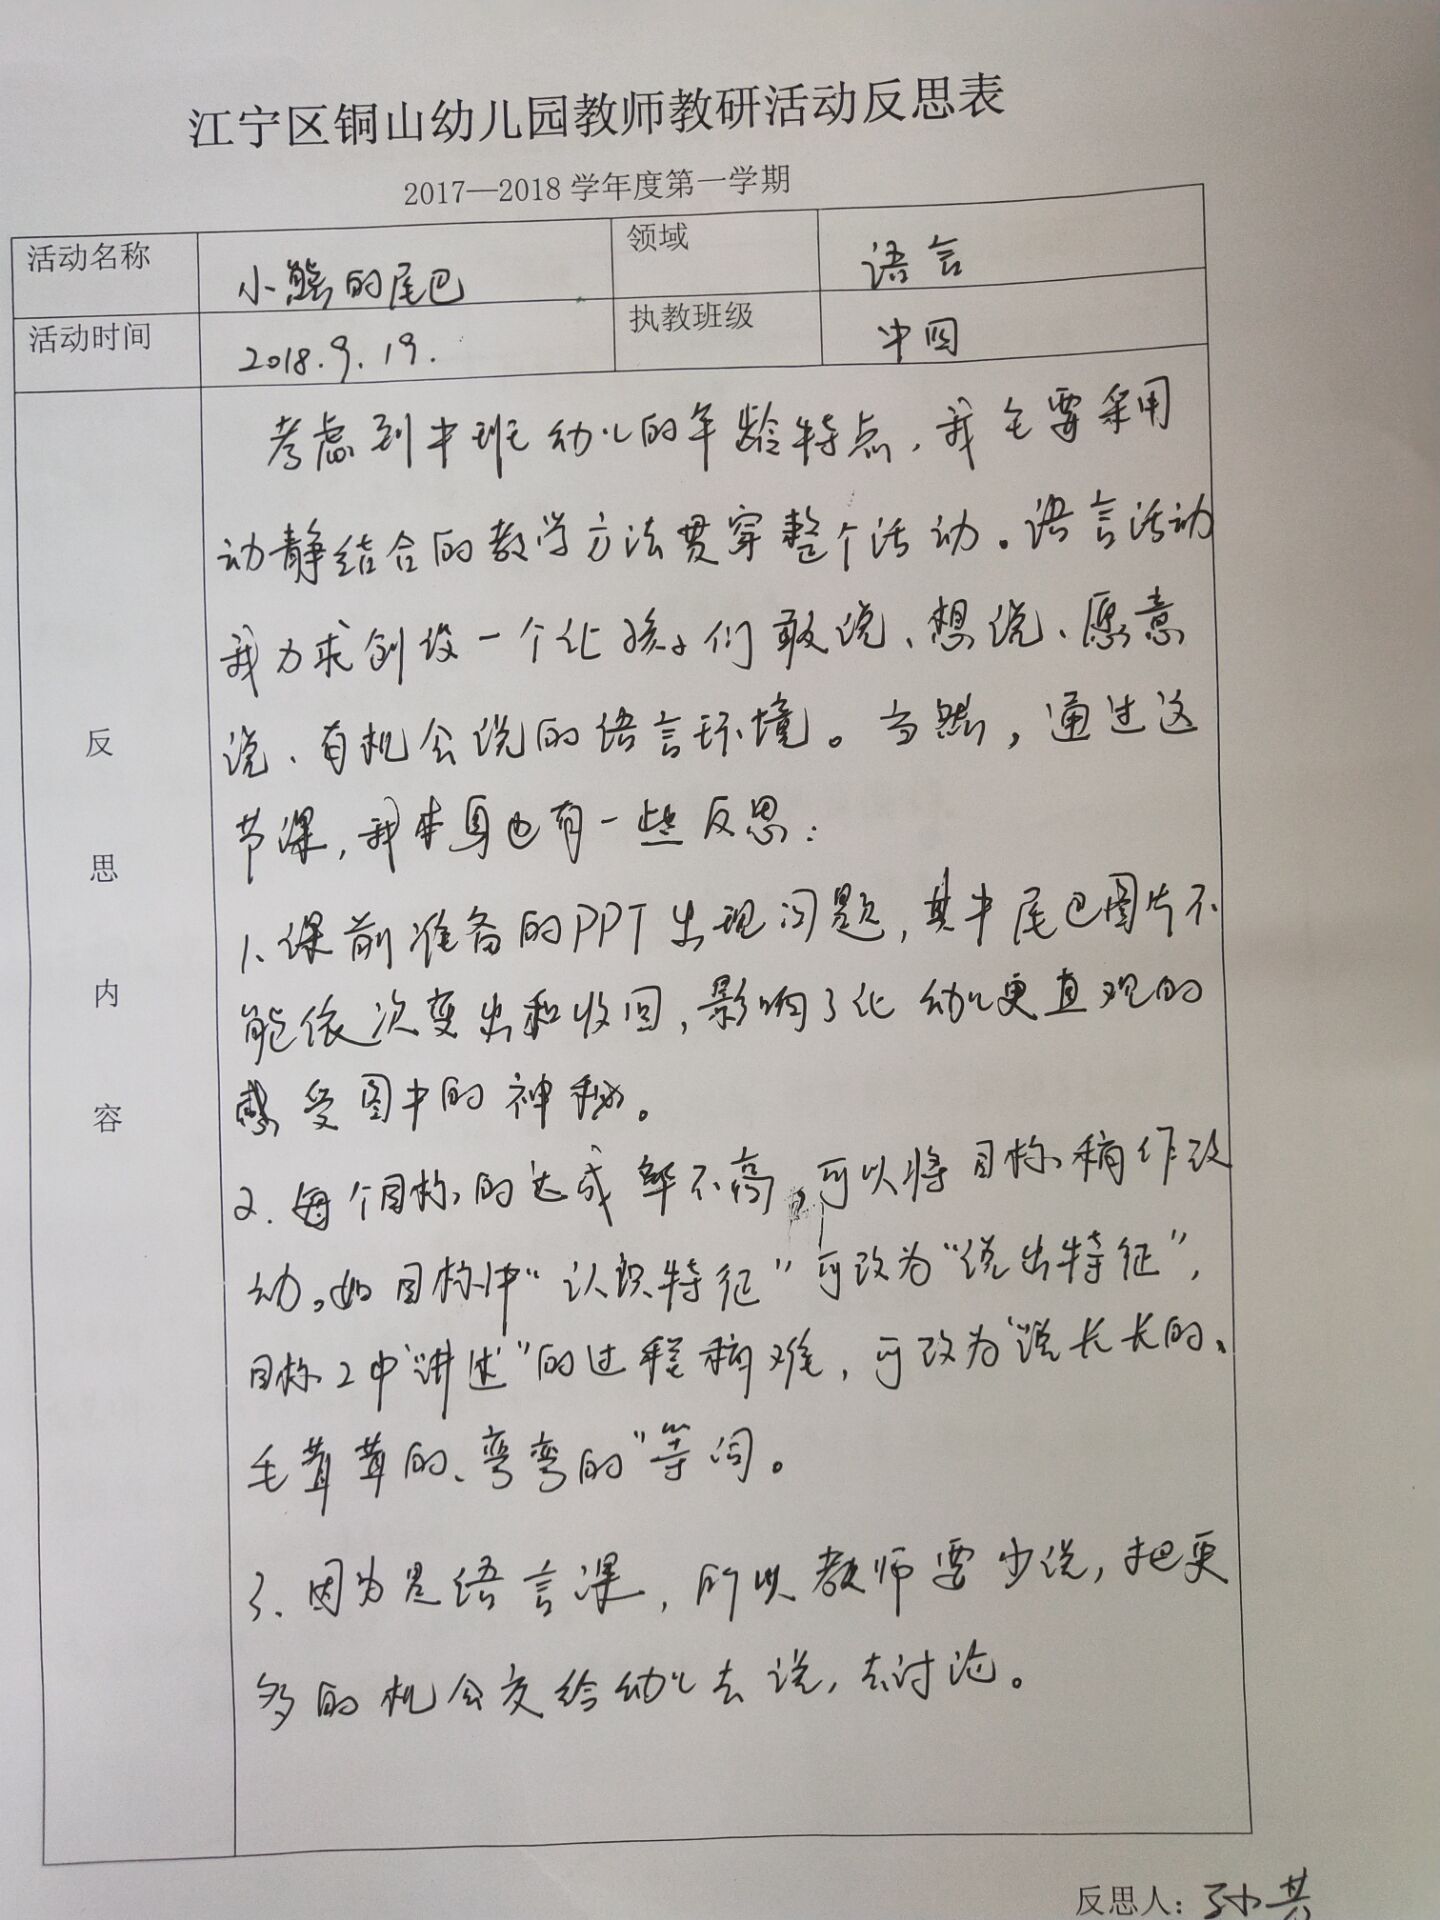 江宁区铜山幼儿园教师教研活动反思表
2017—2018 学年度第一学期
活动名称 小熊的尾巴 领域 语言
活动时间 2018.9.19. 执教班级 中四
反思内容
考虑到中班幼儿的年龄特点，我主要采用
动静结合的教学方法贯穿整个活动。语言活动
我力求创设一个让孩子们敢说、想说、愿意
说、有机会说的语言环境。当然，通过这
节课，我本身也有一些反思：
1、课前准备的PPT出现问题，其中尾巴图片不
能依次变出和收回，影响了让幼儿更直观的
感受图中的神秘。
2、每个目标的达成率不高，可以将目标稍作改
动。如目标1中“认识特征”可改为“说出特征”，
目标2中“讲述”的过程稍难，可改为“说长长的、
毛茸茸的、弯弯的”等词。
3、因为是语言课，所以教师要少说，把更
多的机会交给幼儿去说，去讨论。
反思人：孙